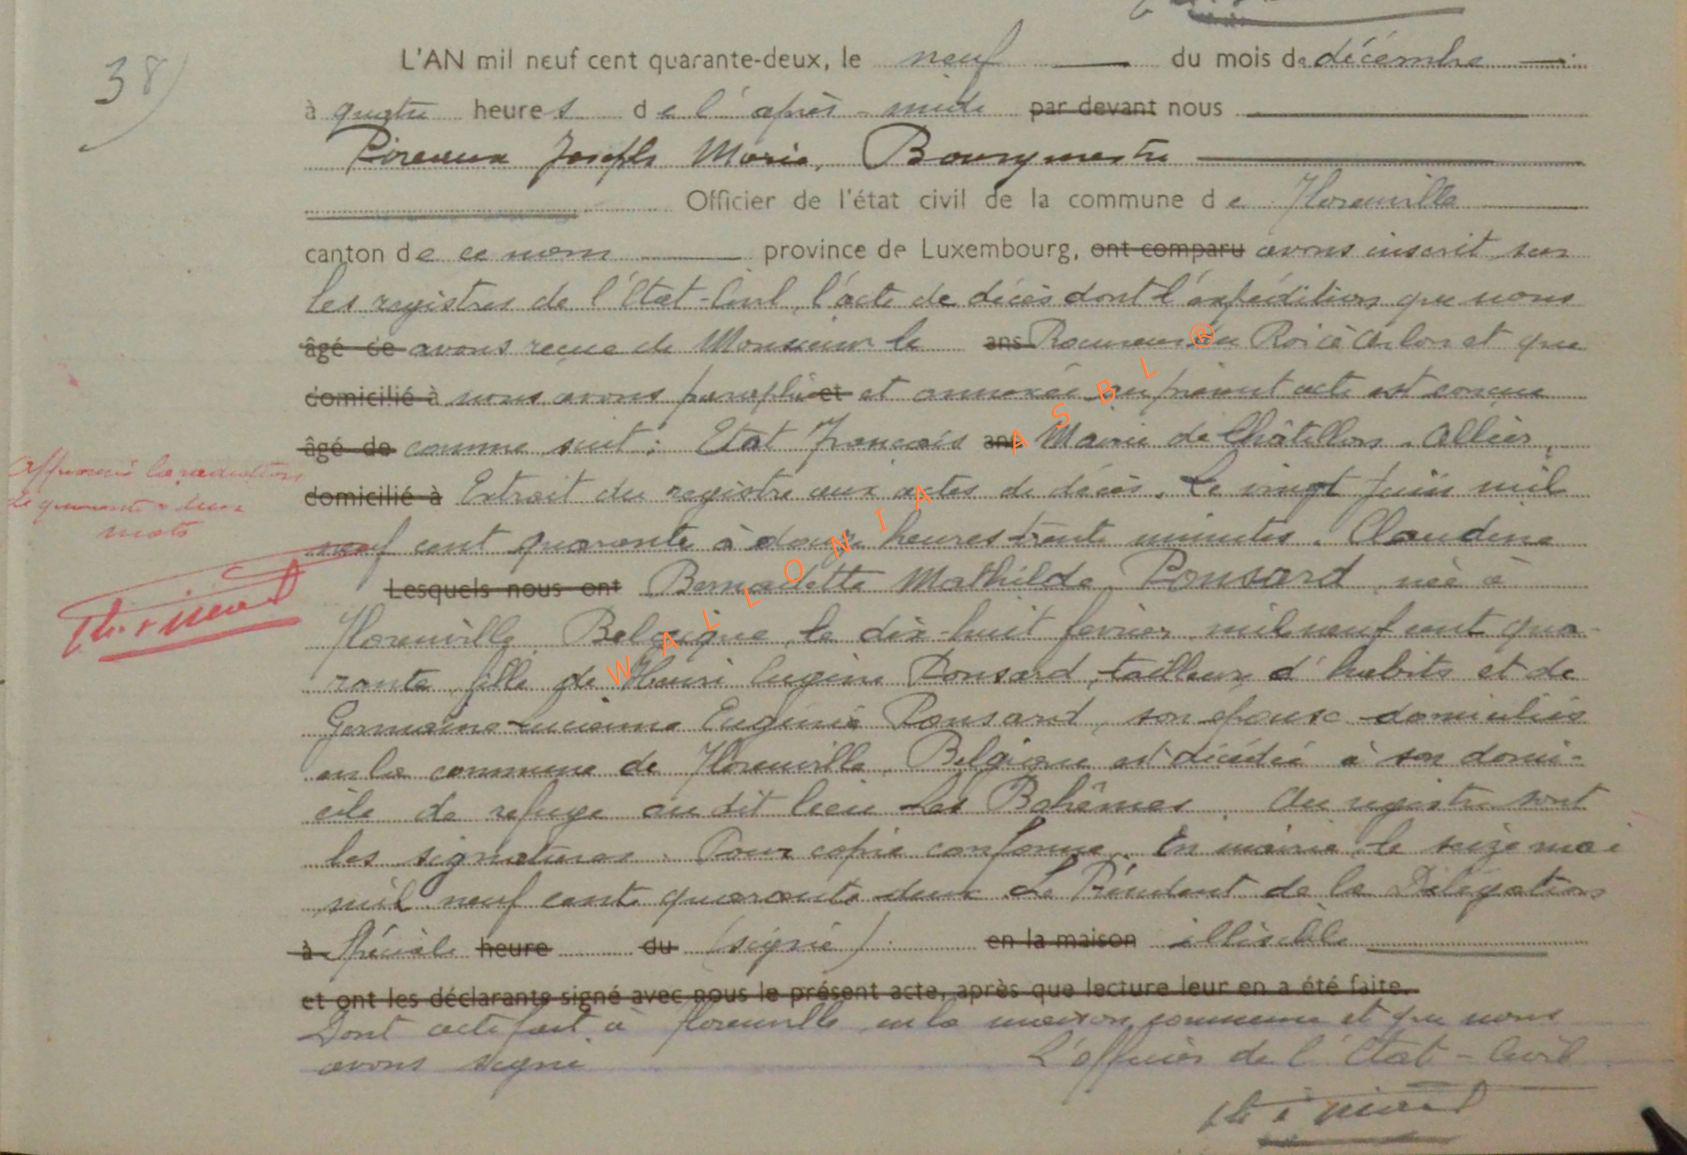 38)
L'AN mil neuf cent quarante-deux, le neuf du mois de décembre
à quatre heures de l'après-midi par devant nous
Joseph Marie, Bourgmestre
Officier de l'état civil de la commune de Florenville
canton de ce nom province de Luxembourg, ont comparu avons inscrit sur
les registres de l'Etat-Civil, l'acte de décès dont l'expédition que nous
âgé de avons reçue de Monsieur le ans Procureur du Roi à Arlon et que
domicilié à nous avons paraphé et et annexée au présent acte est conçue
âgé de comme suit: Etat français ans Mairie de Châtillon. Allier.
domicilié à Extrait du registre aux actes de décès. Le vingt juin mil
neuf cent quarante à douze heures trente minutes. Claudine
Lesquels nous ont Bernadette Mathilde Ponsard née à
Florenville Belgique le dix-huit février mil neuf cent qua-
rante, fille de Henri Eugène Ponsard, tailleur d'habits et de
Germaine Lucienne Eugénie Ponsard, son épouse domiciliés
en la commune de Florenville Belgique est décédée à son domi-
cile de refuge au dit lieu Les Bohêmes. Au registre sont
les signatures. Pour copie conforme. En mairie le seize mai
mil neuf cent quarante deux Le Président de la Délégation
à Spéciale heure du (signé) en la maison illisible
et ont les déclarants signé avec nous le présent acte, après que lecture leur en a été faite.
Dont acte fait à Florenville en la maison commune et que nous
avons signé L'officier de l'Etat-Civil
Approuvé la radiation
de quarante deux
mots
WALLONIA ASBL ®